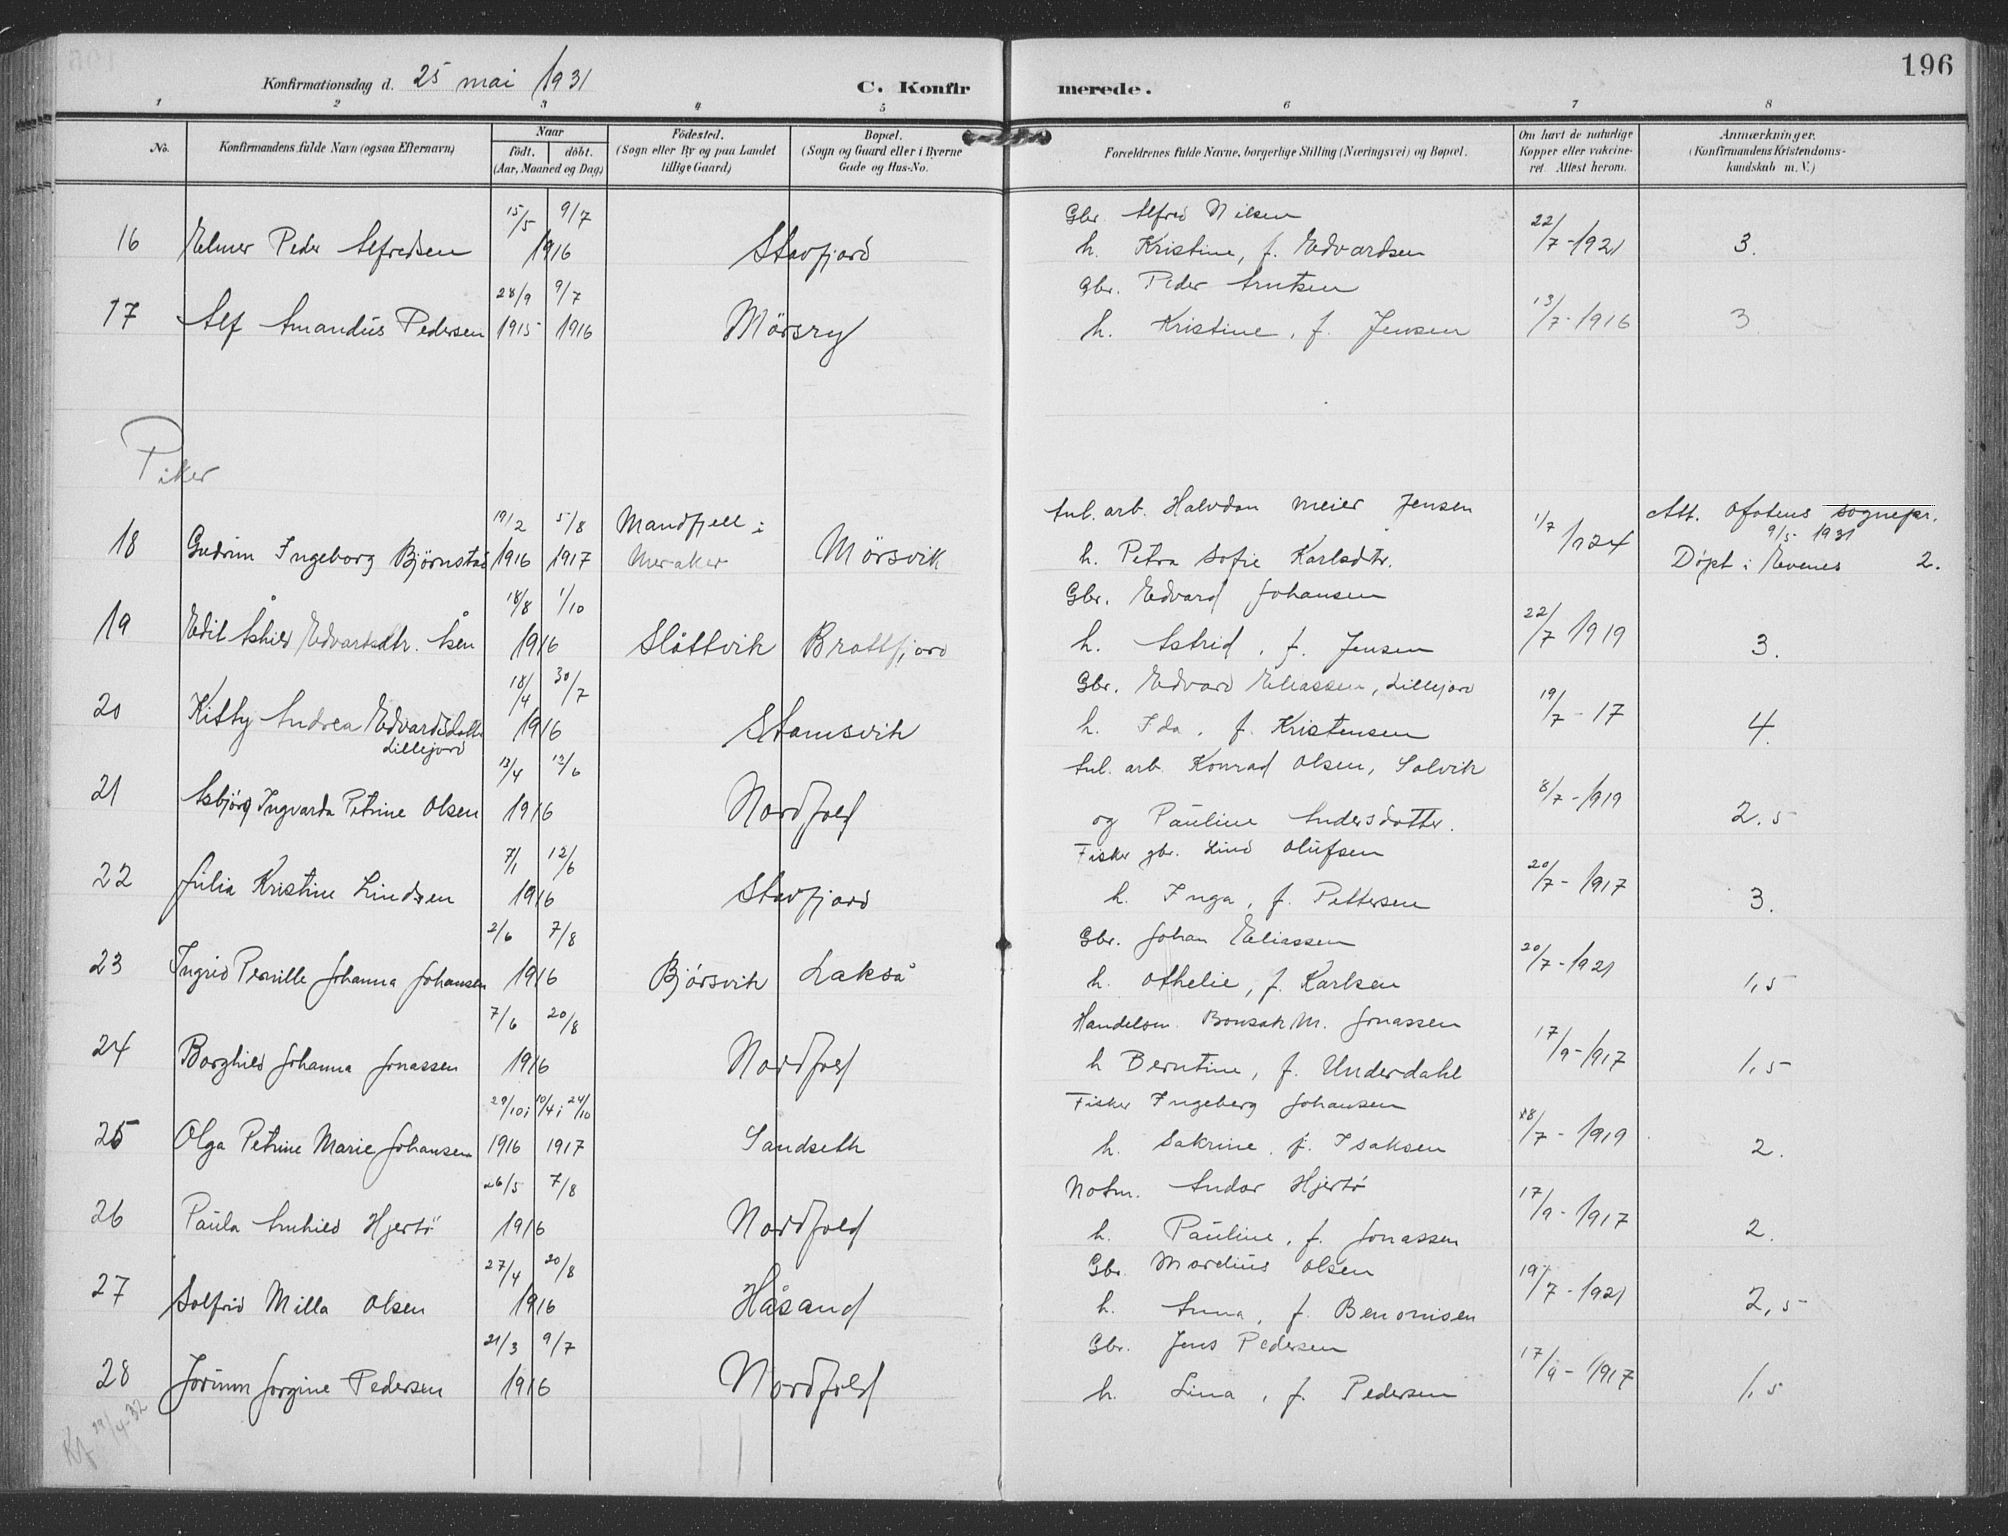 196
Konfirmationsdag d. 25 mai 1931 C. Konfirmerede.
1 2 3 4 5 6 7 8
No. Konfirmandens fulde Navn (ogsaa Efternavn) Naar født. døbt. (Aar, Maaned og Dag) Födested. (Sogn eller By og paa Landet tillige Gaard) Bopæl. (Sogn og Gaard eller i Byerne Gade og Hus-No. Forældrenes fulde Navne, borgerlige Stilling (Næringsvei) og Bopæl. Om havt de naturlige Kopper eller vakcineret. Attest herom. Anmærkninger. (Konfirmandens Kristendomskundskab m. V.)
15/5 9/7 Gbr. Alfred Nilsen
16 Elmer Peder Alfredsen 1916 Stavfjord h. Kristine, f. Edvardsen 22/7-1921 3.
28/9 9/7 Gbr. Peder Arntsen
17 Alf Amandus Pedersen 1915 1916 Mörsry h. Kristine, f. Jensen 13/7-1916 3
Piker
19/2 5/8 Mandfjell i Anl. arb. Halvdan Meier Jensen Att. Ofotens sognepr. 9/5 1931
18 Gudrun Ingeborg Björnstad 1916 1917 Meraker Mörsvik h. Petra Sofie Karlsdtr. 1/7 1924 Døpt i Evenes 2.
18/8 1/10 Gbr. Edvard Johansen
19 Edit Åshild Edvardsdtr. Åsen 1916 Slåttvik Brattfjord h. Astrid, f. Jensen 22/7 1919 3.
18/4 30/7 Gbr. Edvard Eliassen, Lillejord
20 Kitty Andrea Edvardsdatter Lillejord 1916 Stamsvik h. Ida, f. Kristensen 19/7-17 4.
13/4 12/6 Anl. arb. Konrad Olsen, Solvik
21 Asbjörg Ingvarda Petrine Olsen 1916 Nordfold og Pauline Andersdatter. 8/7-1919 2.5
7/1 12/6 Fisker gbr. Lind Olufsen
22 Julia Kristine Lindsen 1916 Stavfjord h. Inga, f. Pettersen 20/7-1917 3.
2/6 7/8 Gbr. Johan Eliassen
23 Ingrid Pernille Johanna Johansen 1916 Björsvik Lakså h. Othelie, f. Karlsen 20/7-1921 1,5
7/6 20/8 Handelsm. Bonsak M. Jonassen
24 Borghild Johanna Jonassen 1916 Nordfold h Berntine, f. Underdahl 17/9-1917 1,5
29/10; 10/4; 24/10 Fisker Ingeberg Johansen
25 Olga Petrine Marie Johansen 1916 1917 Sandseth h. Sakrine, f. Isaksen 28/7-1919 2.
26/5 7/8 Notm. Andor Hjertö
26 Paula Arnhild Hjertö 1916 Nordfold h. Pauline, f. Jonassen 17/9-1917 2.
27/4 20/8 Gbr. Mordius Olsen
27 Solfrid Milla Olsen 1916 Håsand h. Anna, f. Benonisen 19/7-1921 2,5
21/3 9/7 Gbr. Jens Pedersen
28 Jorunn Jorgine Pedersen 1916 Nordfold h. Lina, f. Pedersen 17/9-1917 1,5
Kf 29/4-32